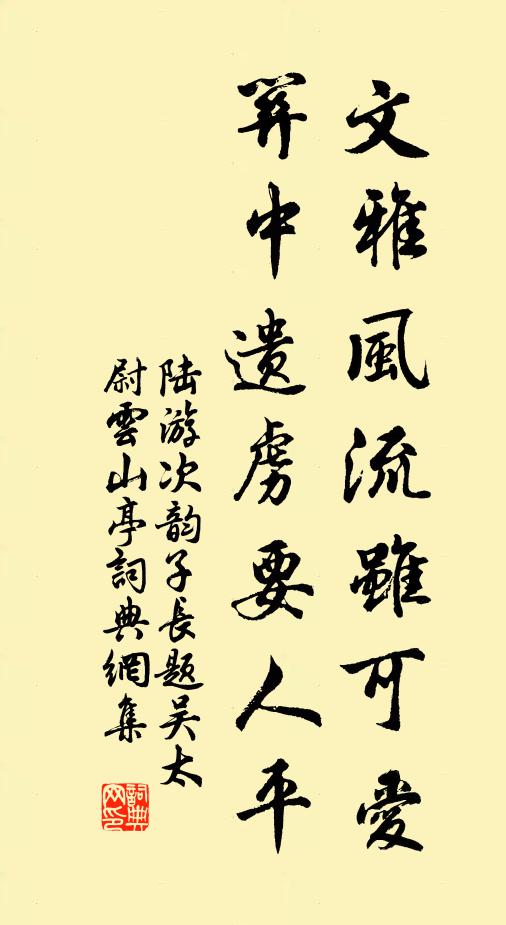 文雅風流雖可愛
關中遺虜要人平
陸游次韵子長題吴太
尉雲山亭詞典網集
詞典
网印